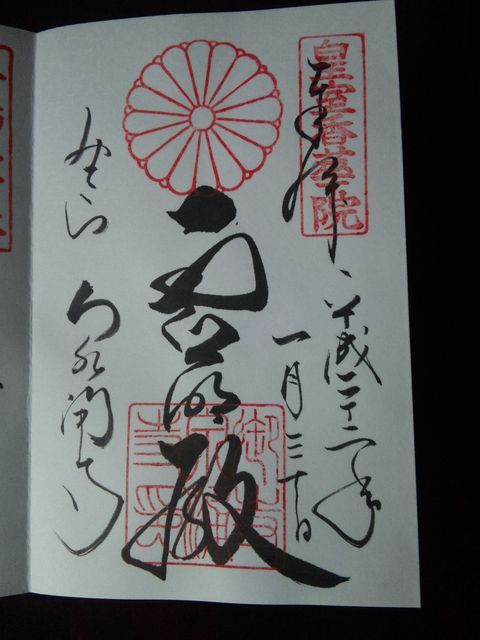 皇室香華院
奉拝 平成二十二年
一月三十日
霊明殿
みてら 泉涌寺